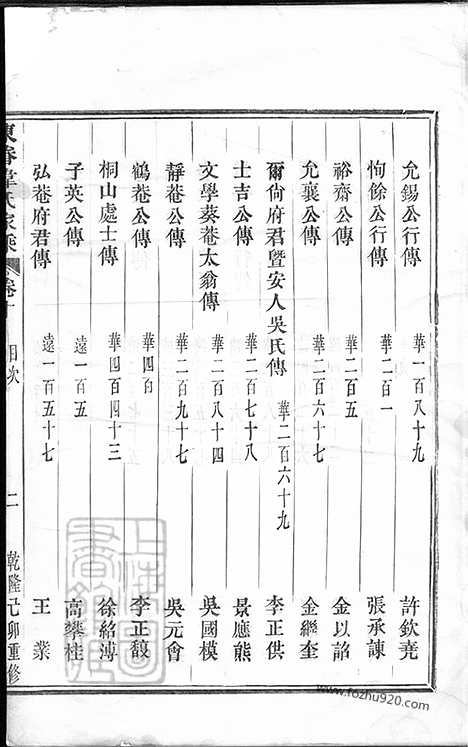 允錫公行傳 華一百八十九 許欽堯
恂餘公行傳 華二百一 張承諫
裕齋公傳 華二百五 金以諂
允襄公傳 華二百六十七 金繼奎
爾尙府君暨安人吳氏傳 華二百六十九 李正供
士吉公傳 華二百七十八 景應熊
文學葵菴太翁傳 華二百八十四 吳國模
靜菴公傳 華二百九十七 吳元會
鶴菴公傳 華四百 李正馥
桐山處士傳 華四百四十三 徐紹溥
子英公傳 遠一百五 高攀桂
弘菴府君傳 遠一百五十七 王業
氏家乘 卷十 目次 二 乾隆己卯重修
上海圖書館藏
www.fozhu920.com